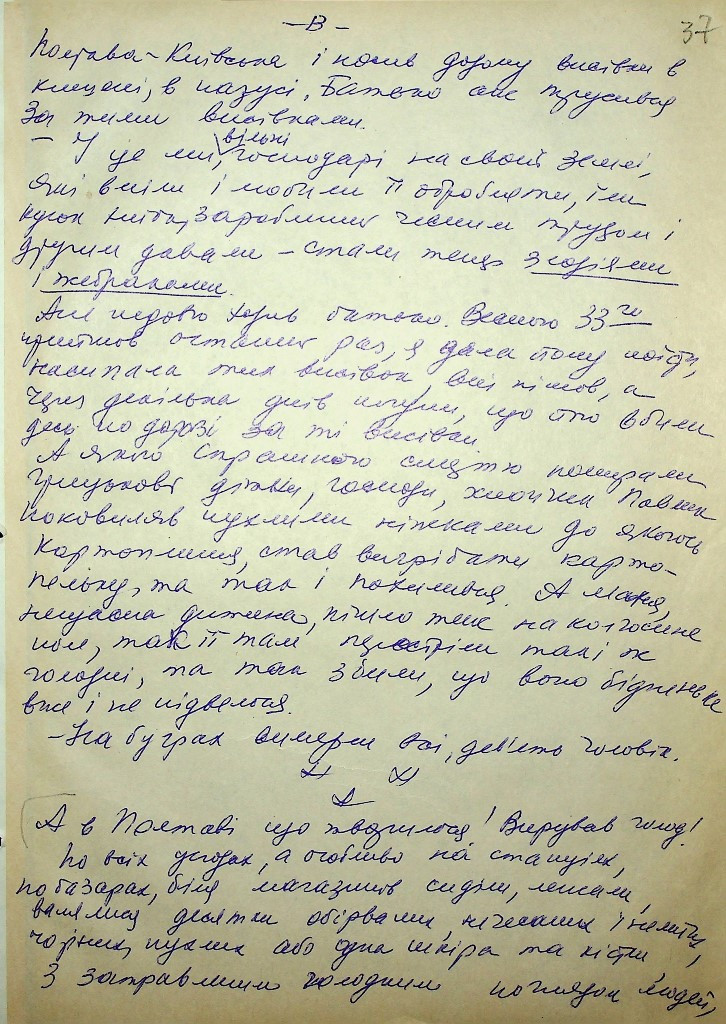 - В -
37
Полтава-Київська і носив додому висівки в
кишені, в пазусі. Батько аж трусився
За тими висівками.
— І це ми, вільні господарі на своїй землі,
які вміли і любили її обробляти, їли
кусок хліба, зароблений чесним трудом і
другим давали – стали тепер злодіями
і жебраками.
Але недовго ходив батько. Весною 33го
прийшов останній раз, я дала йому поїсти,
насипала тих висівок, він пішов, а
через декілька днів почули, що його вбили
десь по дорозі за ті висівки.
А якою страшною смертю помирали
Грицькові дітки, господи, хлопчик Павлик
поковиляв пухлими ніжками до якогось
картоплиння, став вигрібати карто-
пельку, та так і похилився. А Маня,
нещасна дитина, пішло теж на колгоспне
поле, так її там перестріли такі ж
голодні, та так збили, що воно бідненьке
вже і не підвелося.
– На буграх вимерли всі, дев'ять чоловік.
А в Полтаві що творилося! Вирував голод!
по всіх усюдах, а особливо на станціях,
по базарах, біля магазинів сиділи, лежали,
валялися десятки обірваних, нечесаних і немитих,
чорних, пухлих або одна шкіра та кістки
З затравлими голодним поглядом людей,